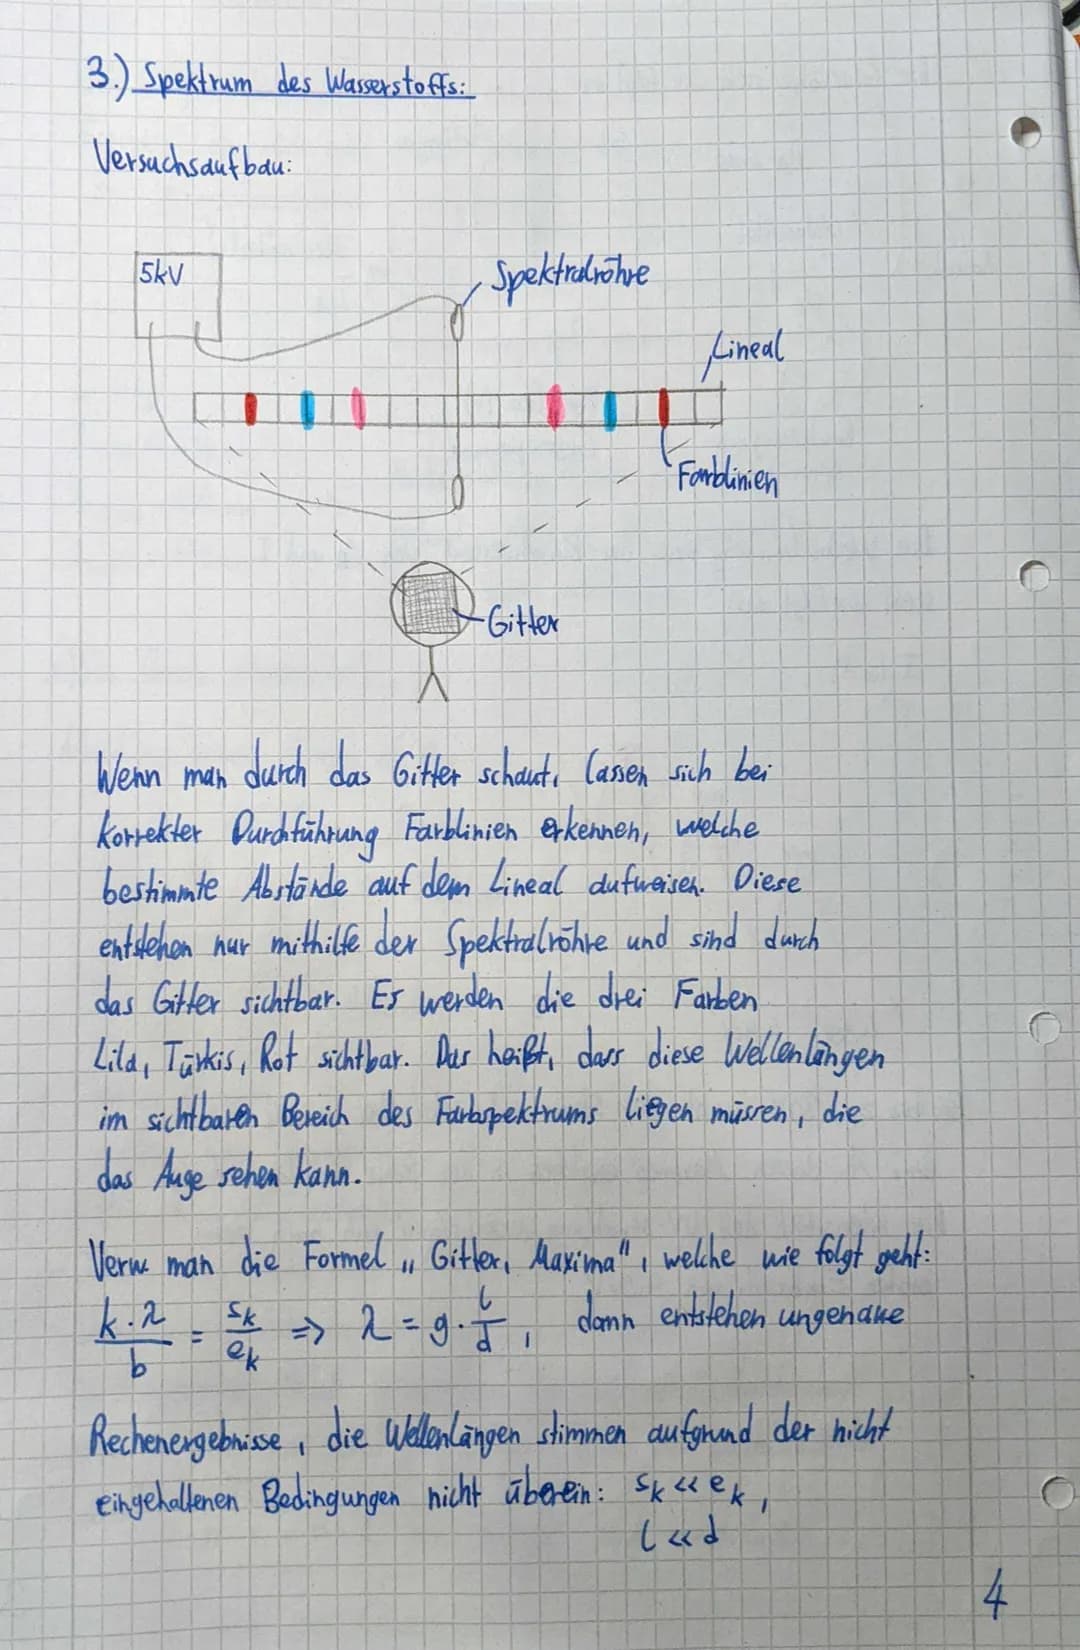 3.) Spektrum des Wasserstoffs:
Versuchsaufbau:
5kV
Spektralröhre
Lineal
Farblinien
Gitter
Wenn man durch das Gitter schaut, lassen sich bei
korrekter Durchführung Farblinien erkennen, welche
bestimmte Abstände auf dem Lineal aufweisen. Diese
entstehen nur mithilfe der Spektralröhre und sind durch
das Gitter sichtbar. Es werden die drei Farben
Lila, Türkis, Rot sichtbar. Das heißt, dass diese Wellenlängen
im sichtbaren Bereich des Farbspektrums liegen müssen, die
das Auge sehen kann.
Verw. man die Formel „Gitter, Maxima", welche wie folgt geht:
k·λ/b = sk/ek => λ = g · l/d, dann entstehen ungenaue
Rechenergebnisse, die Wellenlängen stimmen aufgrund der nicht
eingehaltenen Bedingungen nicht überein: sk << ek,
l << d
4